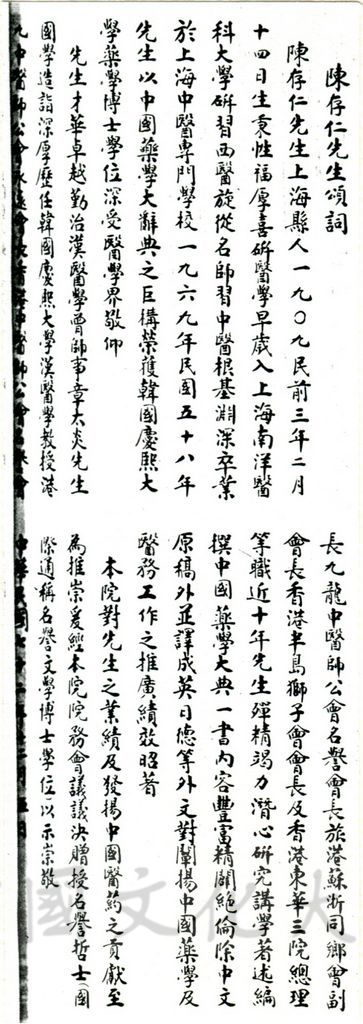 陳存仁先生頌詞
陳存仁先生上海縣人一九〇九民前三年二月
十四日生秉性福厚喜研醫學早歲入上海南洋醫
科大學研習西醫旋從名師習中醫根基淵深卒業
於上海中醫專門學校一九六九年民國五十八年
先生以中國藥學大辭典之巨構榮獲韓國慶熙大
學藥學博士學位深受醫學界敬仰
先生才華卓越勤治漢醫學曾師事章太炎先生
國學造詣深厚歷任韓國慶熙大學漢醫學教授港
九中醫師公會永遠會
長九龍中醫師公會名譽會長旅港蘇浙同鄉會副
會長香港半島獅子會會長及香港東華三院總理
等職近十年先生殫精竭力潛心研究講學著述編
撰中國藥學大典一書內容豐富精闢絕倫除中文
原稿外並譯成英日德等外文對闡揚中國藥學及
醫務工作之推廣績效昭著
本院對先生之業績及發揚中國醫葯之貢獻至
為推崇爰經本院院務會議議決贈授名譽哲士(國
際通稱名譽文學博士學位)以示崇敬
中華民國
國文化大